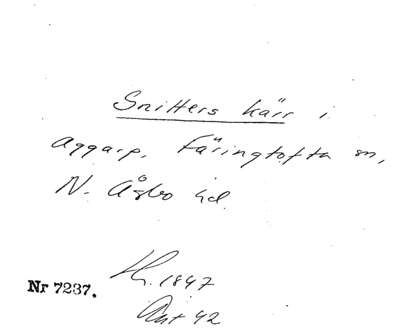 Snitters kärr i
Aggarp, Färingtofta sn,
N. Åsbo hd
H. 1847
Nr 7237.
Ant 42